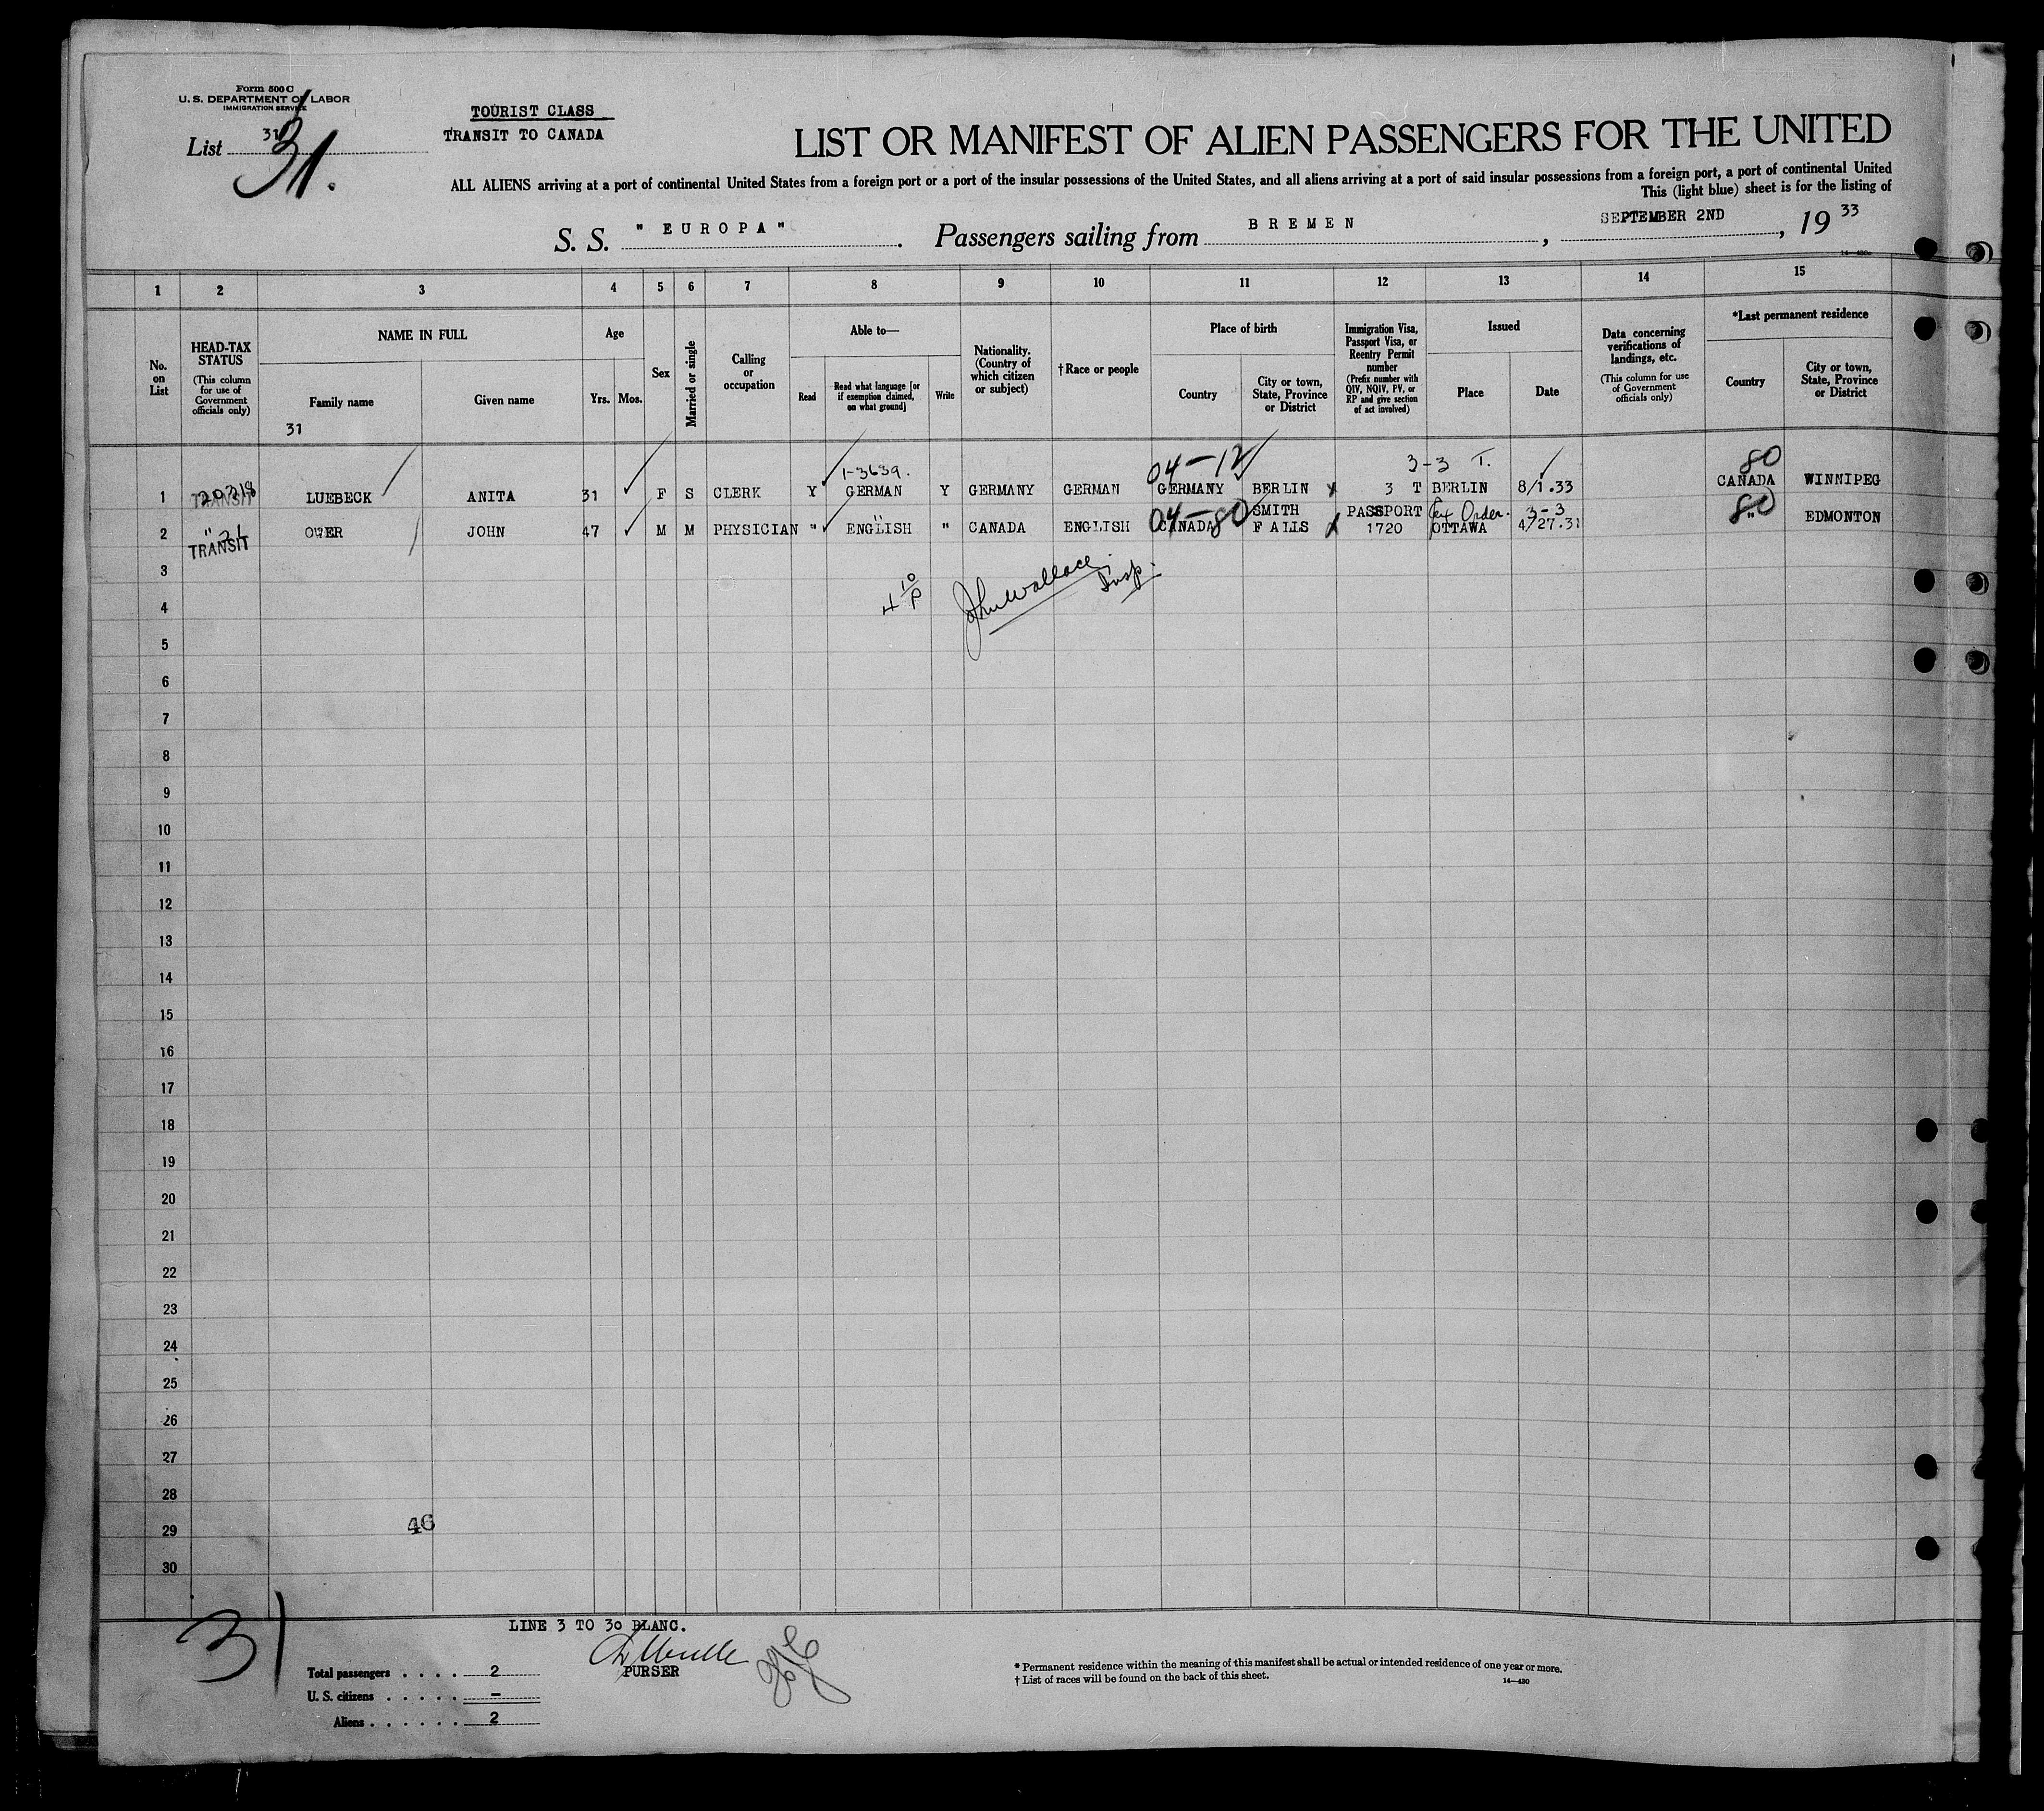 Form 500 C
U. S. DEPARTMENT OF LABOR
IMMIGRATION SERVICE
List 31
31.
TOURIST CLASS
TRANSIT TO CANADA
LIST OR MANIFEST OF ALIEN PASSENGERS FOR THE UNITED
ALL ALIENS arriving at a port of continental United States from a foreign port or a port of the insular possessions of the United States, and all aliens arriving at a port of said insular possessions from a foreign port, a port of continental United
This (light blue) sheet is for the listing of
S. S. "EUROPA". Passengers sailing from BREMEN, SEPTEMBER 2ND, 1933
14—430
1 2 3 4 5 6 7 8 9 10 11 12 13 14 15
No. on List
HEAD-TAX STATUS
(This column for use of Government officials only)
NAME IN FULL
Family name
Given name
31
Age
Yrs. Mos.
Sex
Married or single
Calling or occupation
Able to—
Read
Read what language [or if exemption claimed, on what ground]
Write
Nationality. (Country of which citizen or subject)
†Race or people
Place of birth
Country
City or town, State, Province or District
Immigration Visa, Passport Visa, or Reentry Permit number
(Prefix number with QIV, NQIV, PV, or RP and give section of act involved)
Issued
Place
Date
Data concerning verifications of landings, etc.
(This column for use of Government officials only)
*Last permanent residence
Country
City or town, State, Province or District
1-3639. 04-12 3-3 T. 80
1 TRANSIT LUEBECK ANITA 31 F S CLERK Y GERMAN Y GERMANY GERMAN GERMANY BERLIN 3 T BERLIN 8/1.33 CANADA WINNIPEG
04-80 SMITH PASSPORT Ex Order. 3-3 80
2 TRANSIT JOHN 47 M M PHYSICIAN " ENGLISH " CANADA ENGLISH CANADA FALLS 1720 OTTAWA 4/27.31 " EDMONTON
3
John Wallace, Insp.
4
5
6
7
8
9
10
11
12
13
14
15
16
17
18
19
20
21
22
23
24
25
26
27
28
29
46
30
31
LINE 3 TO 30 BLANC.
PURSER
Total passengers . . . . 2
U. S. citizens . . . . . —
Aliens . . . . . . 2
* Permanent residence within the meaning of this manifest shall be actual or intended residence of one year or more.
† List of races will be found on the back of this sheet.
14—430